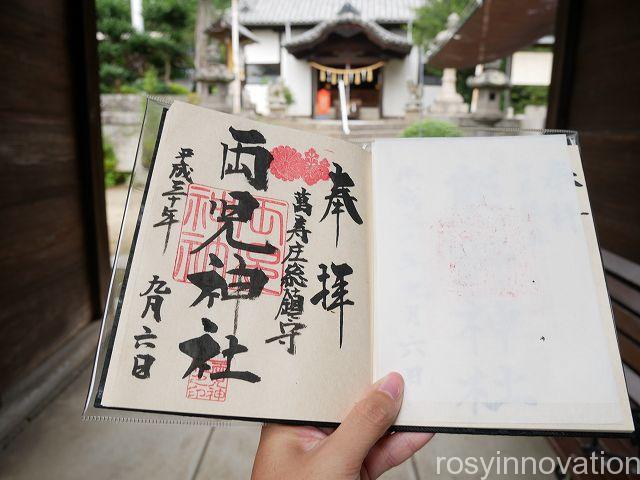 奉拝
萬寿庄総鎮守
両児神社
平成三十年
九月六日
rosyinnovation